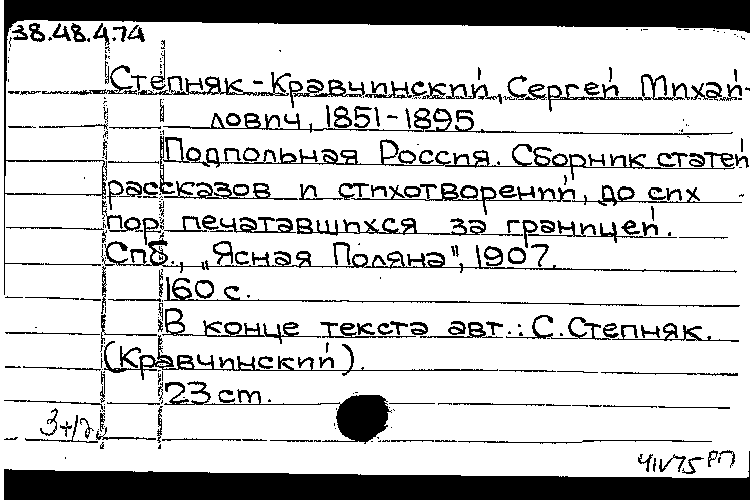 38.48.4.74
Степняк-Кравчинский, Сергей Михай-
лович, 1851-1895.
Подпольная Россия. Сборник статей
рассказов и стихотворений, до сих
пор печатавшихся за границей.
Спб., „Ясная Поляна", 1907.
160 с.
В конце текста авт.: С. Степняк.
(Кравчинский).
23 cm.
4IV75 РП